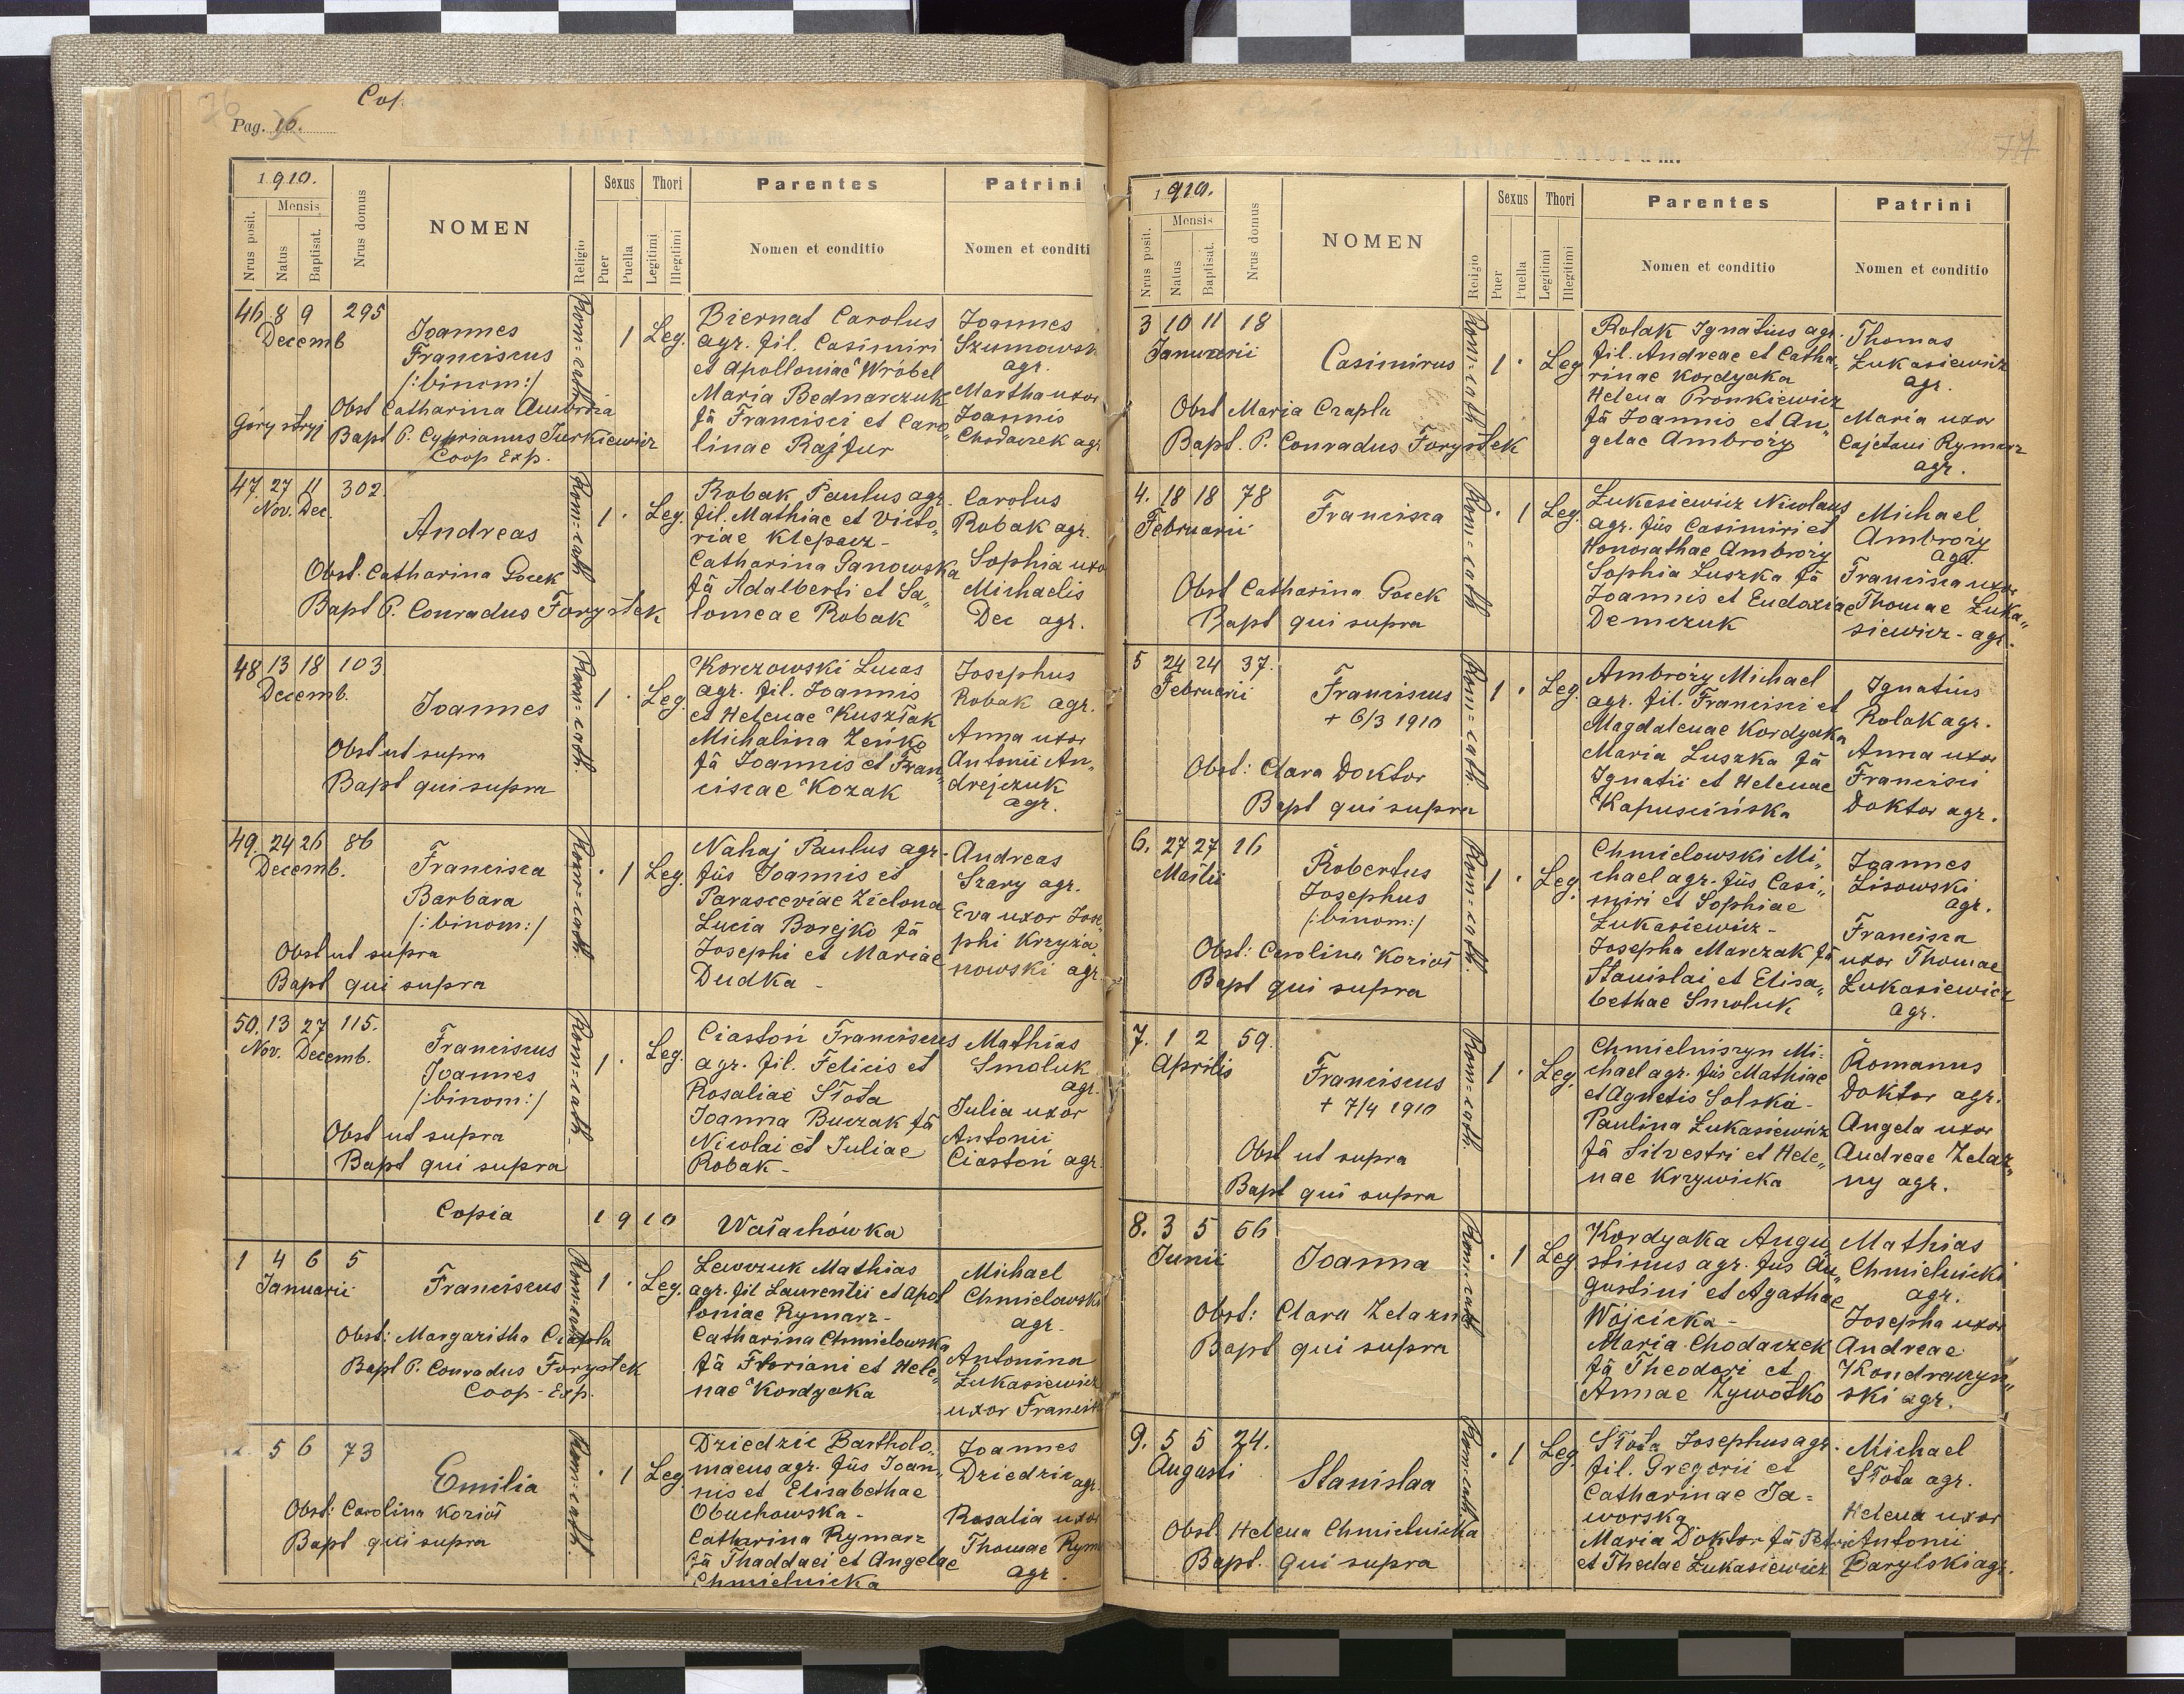 Cop.
Pag. 16.
1910.
Nrus posit.
Mensis
Natus
Baptisat.
Nrus domus
NOMEN
Religio
Sexus
Puer
Puella
Thori
Legitimi
Illegitimi
Parentes
Nomen et conditio
Patrini
Nomen et conditi
46 8 9 295
Decemb
Joannes
Franciscus
/:binom:/
Rom=cath
1 Leg.
Obst Catharina Ambroria
Góry stryj Bapt P. Cyprianus Jurkiewicz
Coop Exp.
Biernat Carolus
agr. fil. Casimiri
et Apolloniae Wróbel
Maria Bednarczuk
fa Francisci et Caro„
linae Rajfur
Joannes
Szumowsk
agr.
Martha uxor
Joannis
Chodaczek agr
47. 27 11 302.
Nov. Dec.
Andreas
Rom=cath
1 · Leg.
Obst. Catharina Gocek
Bapt P. Conradus Forystek
Robak Paulus agr.
fil. Mathiae et Victo„
riae Klepacz-
Catharina Ganowska
fa Adalberti et Sa„
lomeae Robak
Carolus
Robak agr.
Sophia uxo
Michaelis
Dec agr.
48 13 18 103
Decemb.
Joannes
Rom=cath.
1 · Leg.
Obst ut supra
Bapt qui supra
Korczowski Lucas
agr. fil. Joannis
et Helenae Kusztak
Michalina Zeńko
fa Joannis et Fran„
ciscae Kozak
Josephus
Robak agr.
Anna uxor
Antonii An„
drejczuk
agr.
49. 24 26 86
Decemb.
Francisca
Barbara
/:binom:/
Rom=cath.
· 1 Leg.
Obst ut supra
Bapt qui supra
Nahaj Paulus agr.
fius Joannis et
Parasceviae Zielona
Lucia Borejko fa
Josephi et Mariae
Dudka -
Andreas
Szary agr.
Eva uxor Jose„
phi Krzyża„
nowski agr
50. 13 27 115.
Nov. Decemb.
Franciscus
Joannes
/:binom:/
Rom=cath-
1 · Leg.
Obst ut supra
Bapt qui supra
Ciastoń Franciscus
agr. fil. Felicis et
Rosaliae Słota
Joanna Buczak fa
Nicolai et Juliae
Robak-
Mathias
Smoluk
agr.
Julia uxor
Antonii
Ciastoń agr.
Copia 1910 Wałachówka
1 4 6 5
Januarii
Franciscus
Rom=cath
1 · Leg.
Obst: Margaritha Crapla
Bapt P. Conradus Forystek
Coop-Exp.
Lewczuk Mathias
agr. fil Laurentii et Apol
loniae Rymarz-
Catharina Chmielowska
fa Floriani et Hele„
nae Kordyaka
Michael
Chmielowski
agr.
Antonina
Łukasiewicz
uxor Francis
5 6 73
Emilia
Rom=cath.
· 1 Leg
Obst: Carolina Kozioł
Bapt qui supra
Dziedzic Bartholo„
maeus agr. fius Joan„
nis et Elisabethae
Obuchowska-
Catharina Rymarz
fa Thaddaei et Angelae
Chmielnicka
Joannes
Dziedzic
agr
Rosalia uxor
Thomae Rym
agr.
77
1910.
Nrus posit.
Mensis
Natus
Baptisat.
Nrus domus
NOMEN
Religio
Sexus
Puer
Puella
Thori
Legitimi
Illegitimi
Parentes
Nomen et conditio
Patrini
Nomen et conditio
3 10 11 18
Januarii
Casimirus
Rom=cath
1 · Leg
Obst Maria Crapla
Bapt. P. Conradus Forystek
Rolak Ignatius agr.
fil. Andreae et Catha„
rinae Kordyaka
Helena Pronkiewicz
fa Joannis et An„
gelae Ambroży
Thomas
Łukasiewicz
agr.
Maria uxor
Cajetani Rymarz
agr.
4. 18 18 78
Februarii
Francisca
Rom=cath
· 1 Leg.
Obst Catharina Gocek
Bapt qui supra
Łukasiewicz Nicolaus
agr. fius Casimiri et
Honorathae Ambroży
Sophia Luszka fa
Joannis et Eudoxiae
Demczuk
Michael
Ambroży
agr.
Francisca uxor
Thomae Łuka„
siewicz - agr.
5 24 24 37.
Februarii
Franciscus
+ 6/3 1910
Rom=cath.
1 · Leg.
Obst: Clara Doktor
Bapt qui supra
Ambroży Michael
agr. fil. Francisci et
Magdalenae Kordyaka
Maria Luszka fa
Ignatii et Helenae
Kapuscińska
Ignatius
Rolak agr.
Anna uxor
Francisci
Doktor agr.
6. 27 27 16
Martii
Robertus
Josephus
/:binom:/
Rom=cath.
1 · Leg.
Obst: Carolina Kozioł
Bapt qui supra
Chmielowski Mi„
chael agr. fius Casi„
miri et Sophiae
Łukasiewicz-
Josepha Marczak fa
Stanislai et Elisa„
bethae Smoluk
Joannes
Lisowski
agr.
Francisca
uxor Thomae
Łukasiewicz
agr.
7. 1 2 59.
Aprilis
Franciscus
+ 7/4 1910
Rom=cath.
1 · Leg.
Obst ut supra
Bapt qui supra
Chmielniszyn Mi=
chael agr. fius Mathiae
et Agnetis Solska-
Paulina Łukasiewicz
fa Silvestri et Hele„
nae Krzywicka
Romanus
Doktor agr.
Angela uxor
Andreae Żelaz„
ny agr.
8. 3 5 56
Junii
Joanna
Rom=cath
· 1 Leg
Obst: Clara Żelazn
Bapt qui supra
Kordyaka Augu„
stinus agr. fius Au„
gustini et Agathae
Wójcicka-
Maria Chodaczek
fa Theodori et
Annae Żywotko
Mathias
Chmielnicki
agr.
Josepha uxor
Andreae
Kondraczyn„
ski agr.
9. 5 5 24.
Augusti
Stanislaa
Rom=cath
· 1 Leg.
Obst. Helena Chmielnicka
Bapt. qui supra
Słota Josephus agr.
fil. Gregorii et
Catharinae Ja=
worska
Maria Doktor fa Petri
et Theclae Łukasiewicz
Michael
Słota agr.
Helena uxor
Antonii
Barylski agr.